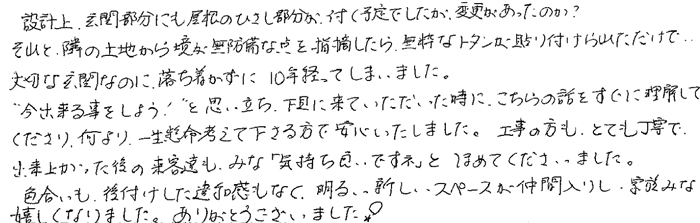 設計上、玄関部分にも屋根のひさし部分が、付く予定でしたが、変更があったのか?
それと、隣の土地から境が無防備な点を指摘したら、無粋なトタンが貼り付けられただけで…
大切な玄関なのに、落ち着かずに 10年経ってしまいました。
"今出来る事をしよう!"と思い立ち、下見に来ていただいた時に、こちらの話をすぐに理解して
くださり、何より、一生懸命考えて下さる方で安心いたしました。 工事の方も、とても丁寧で、
出来上がった後の来客達も、みな「気持ち良いですネ」と ほめてくださいました。
色合いも、後付けした違和感もなく、明るい新しいスペースが仲間入りし、家族みな
嬉しくなりました。ありがとうございました!